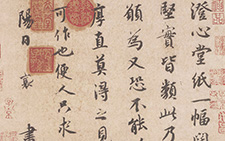 澄心堂紙一幅闊
堅實皆類此乃
願為又恐不能
厚直莫得之見
可作也便人只求
陽日襄書